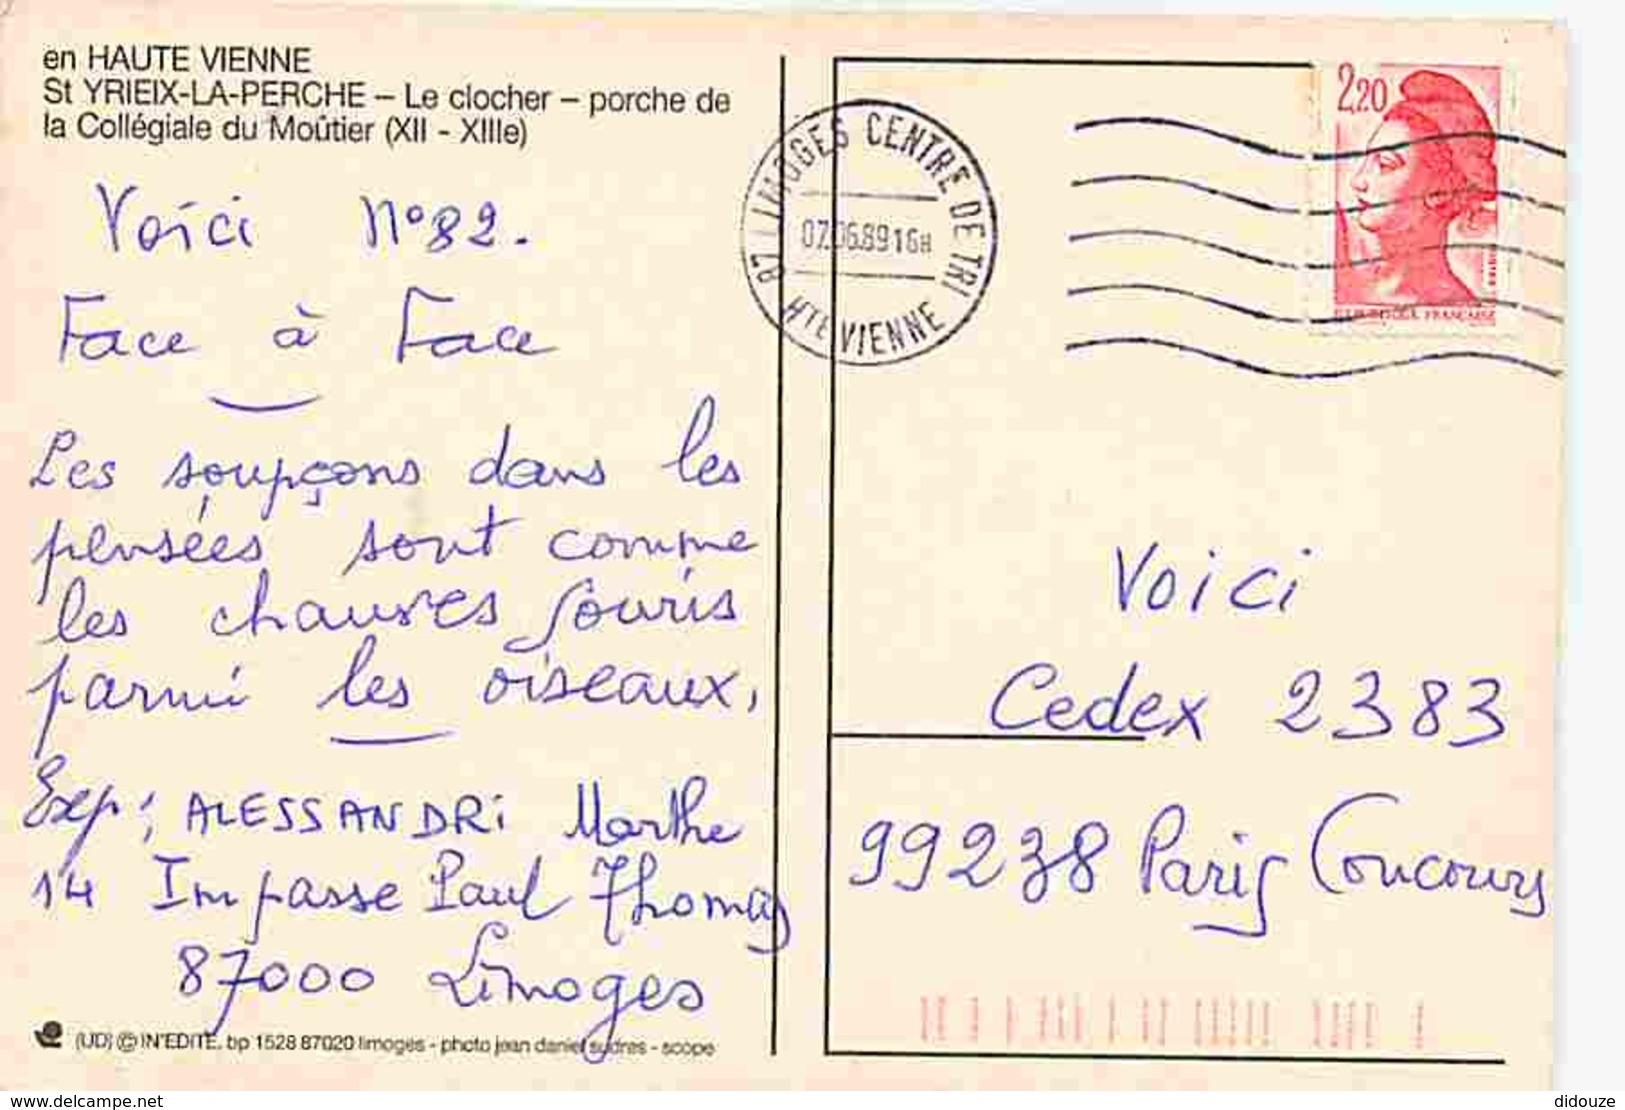 en HAUTE VIENNE
St YRIEIX-LA-PERCHE – Le clocher – porche de
la Collégiale du Moûtier (XII - XIIIe)
Voici N°82.
Face à Face
Les soupçons dans les
pensées sont comme
les chauves souris
parmi les oiseaux,
Exp: ALESSANDRi Marthe
14 Impasse Paul Thomas
87000 Limoges
(UD) © IN'EDITE. bp 1528 87020 limoges - photo jean daniel sudres - scope
87 LIMOGES CENTRE DE TRI
07.06.89 16H
HTE VIENNE
2,20
REPUBLIQUE FRANCAISE
Voici
Cedex 2383
99238 Paris Concours
www.delcampe.net
didouze